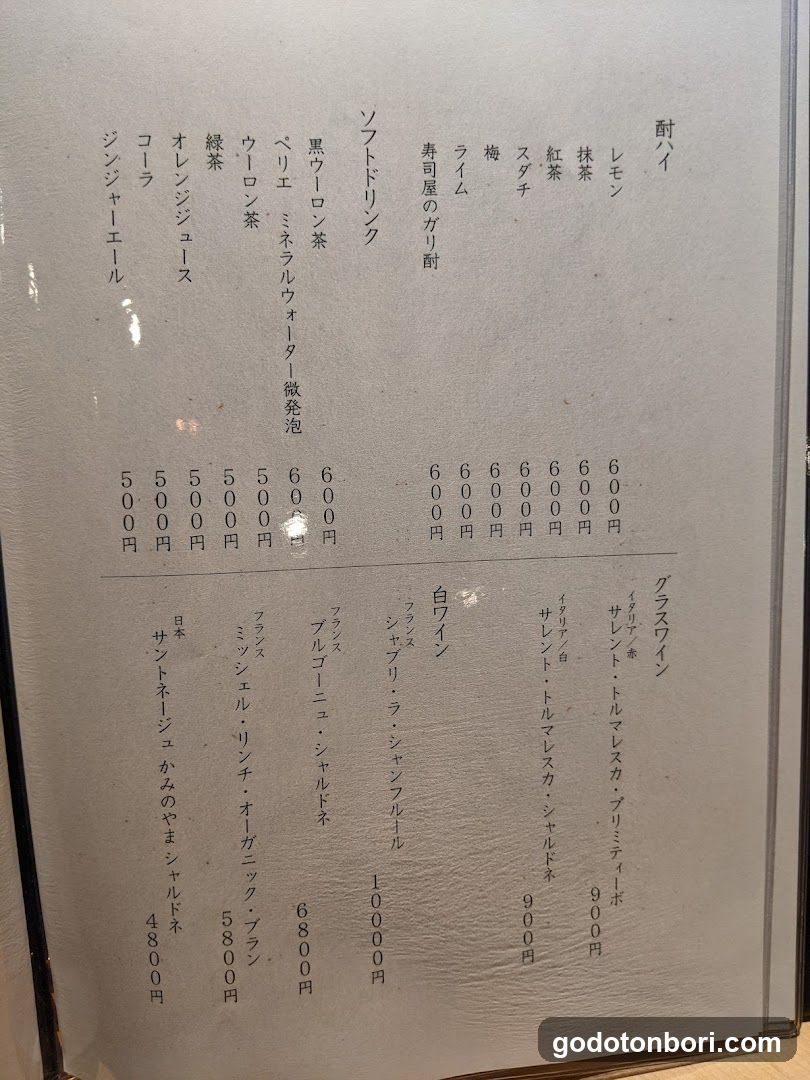 酎ハイ
レモン 600円
抹茶 600円
紅茶 600円
スダチ 600円
梅 600円
ライム 600円
寿司屋のガリ酎 600円
ソフトドリンク
黒ウーロン茶 600円
ペリエ ミネラルウォーター微発泡 600円
ウーロン茶 500円
緑茶 500円
オレンジジュース 500円
コーラ 500円
ジンジャーエール 500円
グラスワイン
イタリア/赤
サレント・トルマレスカ・プリミティーボ 900円
イタリア/白
サレント・トルマレスカ・シャルドネ 900円
白ワイン
フランス
シャブリ・ラ・シャンフルール 10000円
フランス
ブルゴーニュ・シャルドネ 6800円
フランス
ミッシェル・リンチ・オーガニック・ブラン 5800円
日本
サントネージュ かみのやま シャルドネ 4800円
godotonbori.com